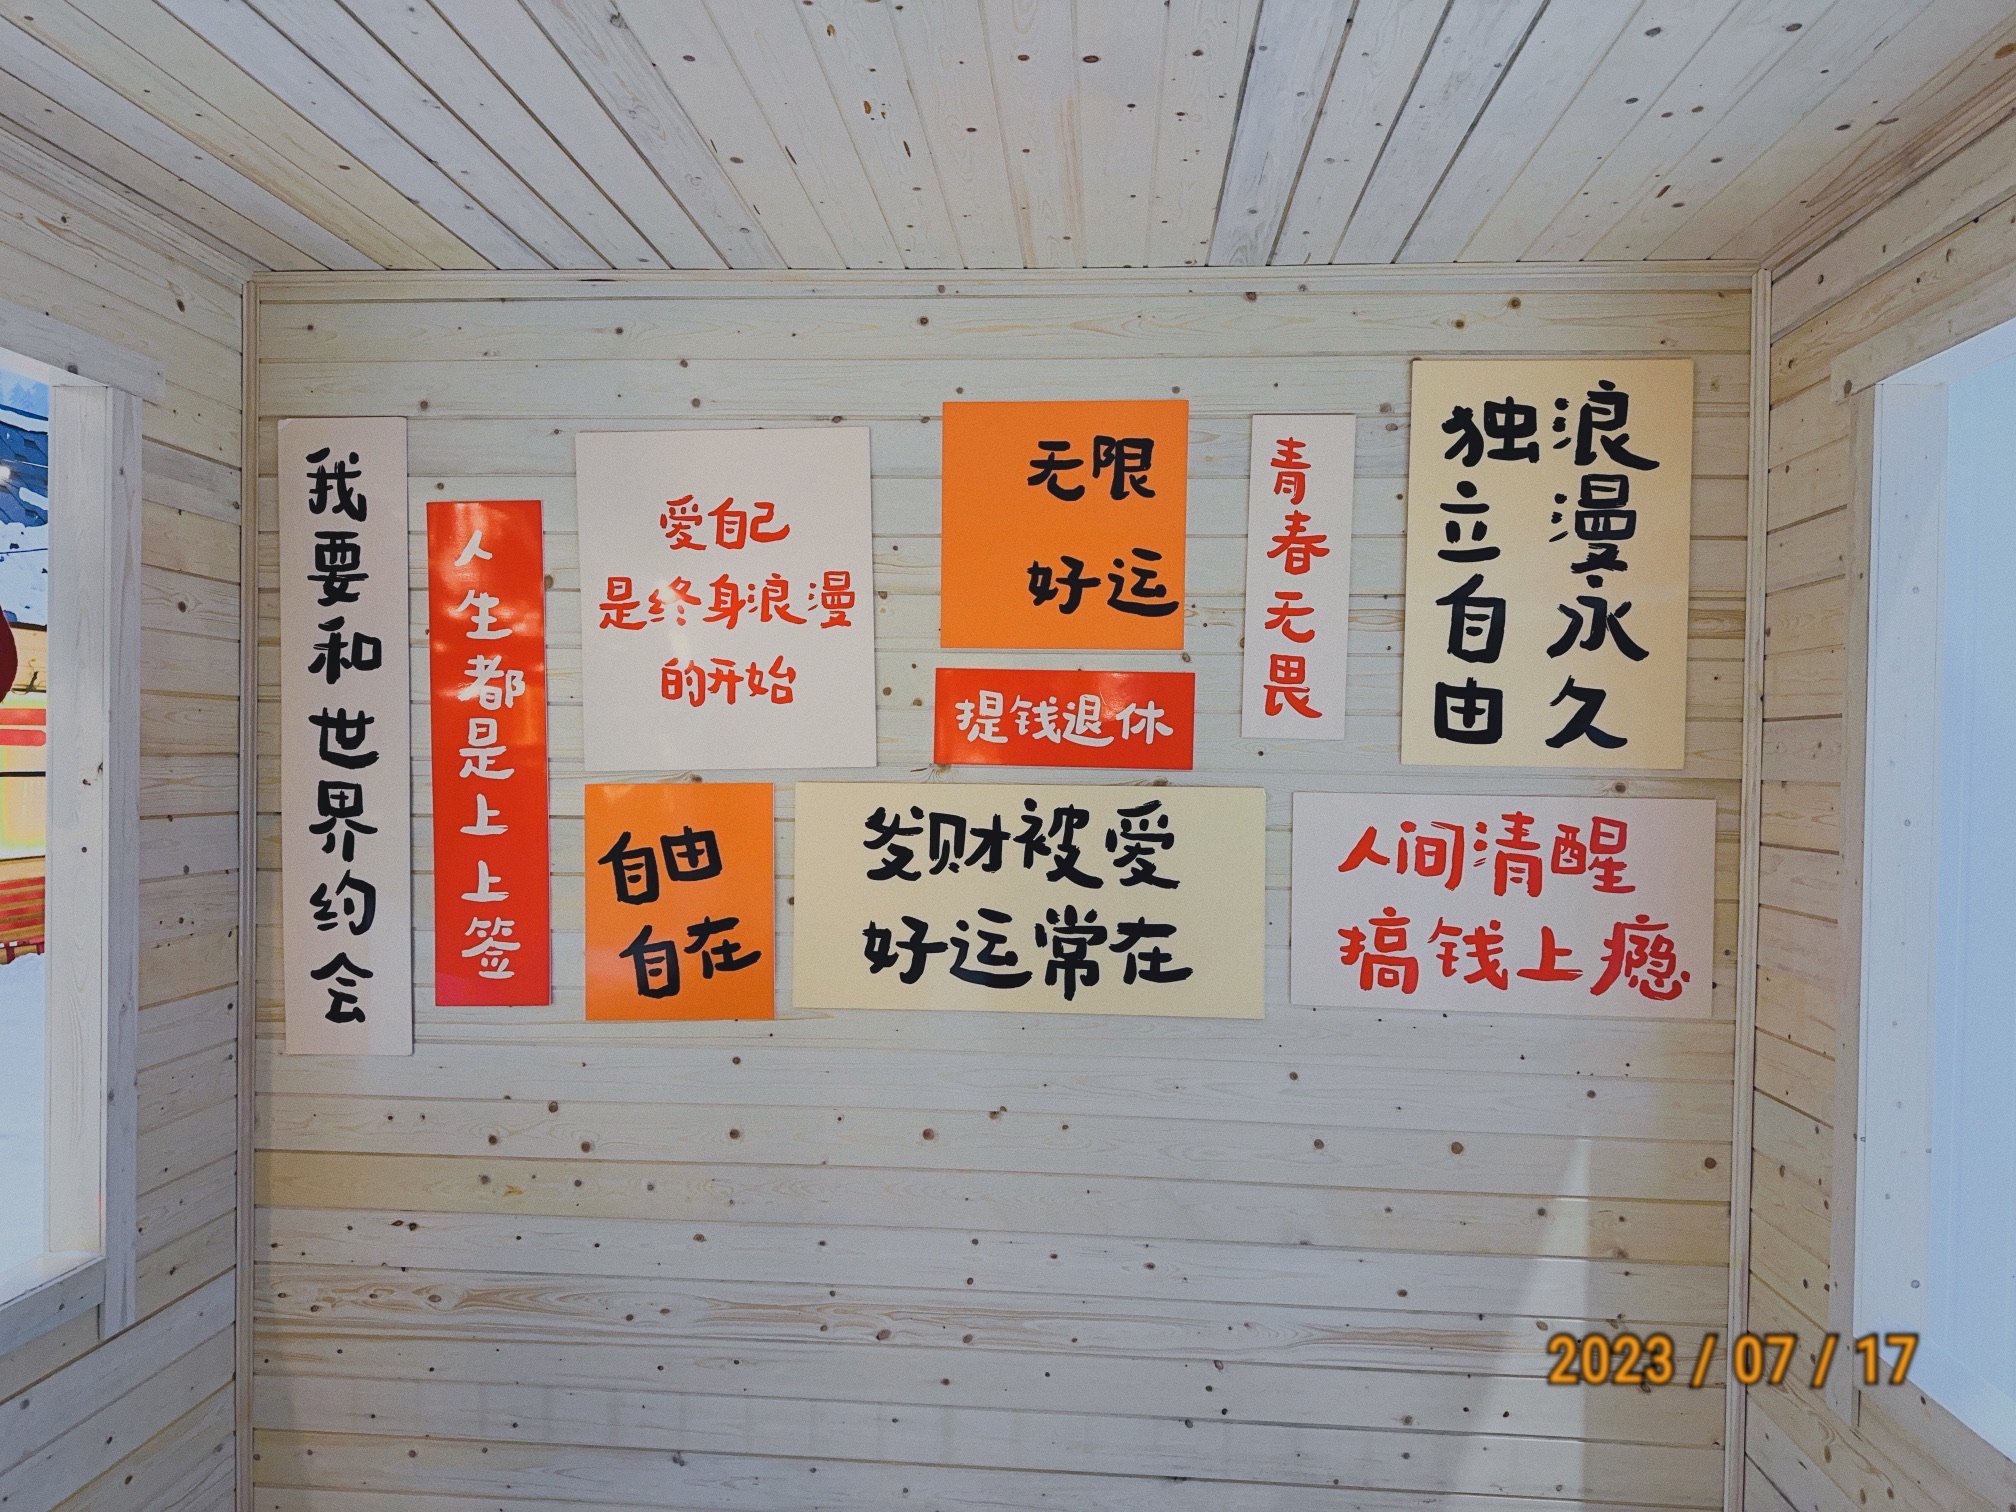 我要和世界约会
人生都是上上签
爱自己
是终身浪漫
的开始
无限
好运
提钱退休
青春无畏
浪漫永久
独立自由
自由
自在
发财被爱
好运常在
人间清醒
搞钱上瘾
2023 / 07 / 17